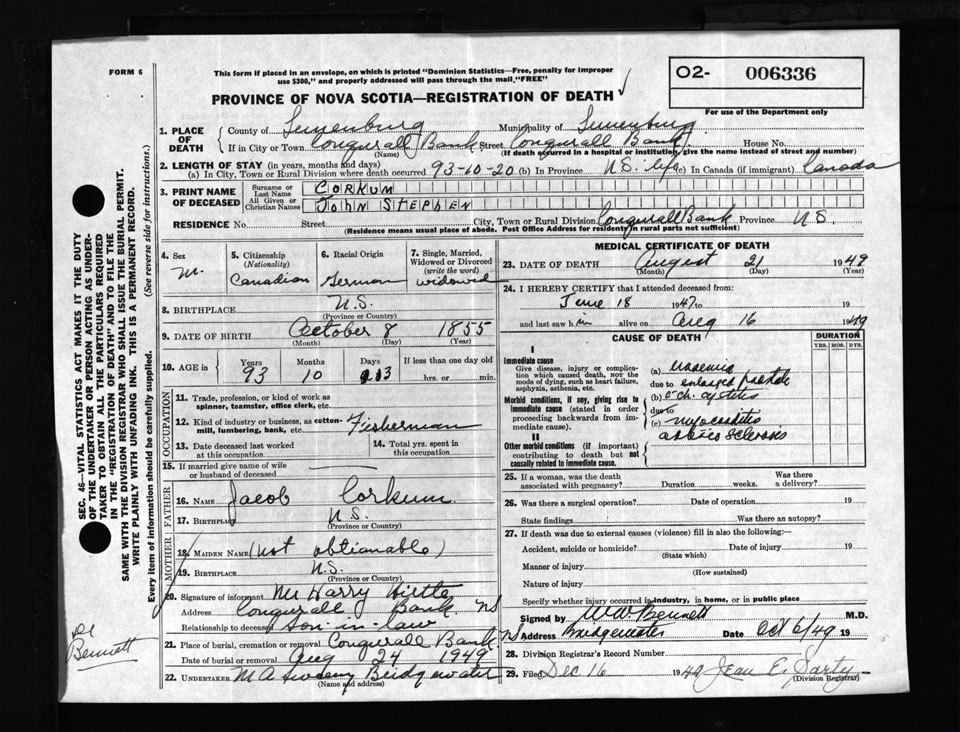 FORM 6
This form if placed in an envelope, on which is printed "Dominion Statistics—Free, penalty for improper
use $300," and properly addressed will pass through the mail, "FREE"
O2- 006336
For use of the Department only
PROVINCE OF NOVA SCOTIA—REGISTRATION OF DEATH
1. PLACE OF DEATH
County of Lunenburg Municipality of Lunenburg
If in City or Town Conquerall Bank Street Conquerall Bank House No.
(Name) (If death occurred in a hospital or institution, give the name instead of street and number)
2. LENGTH OF STAY (in years, months and days)
(a) In City, Town or Rural Division where death occurred 93-10-20 (b) In Province N.S. life (c) In Canada (if immigrant) Canada
3. PRINT NAME OF DECEASED
Surname or Last Name CORKUM
All Given or Christian Names JOHN STEPHEN
RESIDENCE No. Street City, Town or Rural Division Conquerall Bank Province N.S.
(Residence means usual place of abode. Post Office Address for residents in rural parts not sufficient)
4. Sex M.
5. Citizenship (Nationality) Canadian
6. Racial Origin German
7. Single, Married, Widowed or Divorced (write the word) widowed
8. BIRTHPLACE N.S.
(Province or Country)
9. DATE OF BIRTH October 8 1855
(Month) (Day) (Year)
10. AGE in Years Months Days If less than one day old
93 10 13 hrs. or min.
OCCUPATION
11. Trade, profession, or kind of work as
spinner, teamster, office clerk, etc.
12. Kind of industry or business, as cotton-
mill, lumbering, bank, etc. Fisherman
13. Date deceased last worked
at this occupation
14. Total yrs. spent in
this occupation
15. If married give name of wife
or husband of deceased
FATHER
16. NAME Jacob Corkum
17. BIRTHPLACE N.S.
(Province or Country)
MOTHER
18. MAIDEN NAME (not obtianable)
19. BIRTHPLACE N.S.
(Province or Country)
20. Signature of informant Mr Harry Hirtle
Address Conquerall Bank NS
Relationship to deceased Son-in-law
21. Place of burial, cremation or removal Conquerall Bank NS
Date of burial or removal Aug 24 1949
22. UNDERTAKER M A Sweeny Bridgewater
(Name and address)
MEDICAL CERTIFICATE OF DEATH
23. DATE OF DEATH August 21 1949
(Month) (Day) (Year)
24. I HEREBY CERTIFY that I attended deceased from:
June 18 1947 to 19
and last saw him alive on Aug 16 1949
CAUSE OF DEATH
DURATION
YRS. MOS. DYS.
I
Immediate cause
Give disease, injury or complica-
tion which caused death, not the
mode of dying, such as heart failure,
asphyxia, asthenia, etc.
(a) uraemia
due to enlarged prostate
Morbid conditions, if any, giving rise to
immediate cause (stated in order
proceeding backwards from im-
mediate cause).
(b) c ch. cystitis
due to
(c) myocarditis
II
Other morbid conditions (if important)
contributing to death but not
causally related to immediate cause.
arterio sclerosis
25. If a woman, was the death
associated with pregnancy? Duration weeks. Was there
a delivery?
26. Was there a surgical operation? Date of operation 19
State findings Was there an autopsy?
27. If death was due to external causes (violence) fill in also the following:
Accident, suicide or homicide? Date of injury 19
(State which)
Manner of injury
(How sustained)
Nature of injury
Specify whether injury occurred in industry, in home, or in public place
Signed by W W Bennett M.D.
Address Bridgewater Date Oct 6/49 19
28. Division Registrar's Record Number
29. Filed Dec 16 1949 Jean E. Sarty
(Division Registrar)
SEC. 46—VITAL STATISTICS ACT MAKES IT THE DUTY
OF THE UNDERTAKER OR PERSON ACTING AS UNDER-
TAKER TO OBTAIN ALL THE PARTICULARS REQUIRED
IN THE "REGISTRATION OF DEATH" AND TO FILE THE
SAME WITH THE DIVISION REGISTRAR WHO SHALL ISSUE THE BURIAL PERMIT.
WRITE PLAINLY WITH UNFADING INK. THIS IS A PERMANENT RECORD.
Every item of information should be carefully supplied. (See reverse side for instructions.)
Bennett